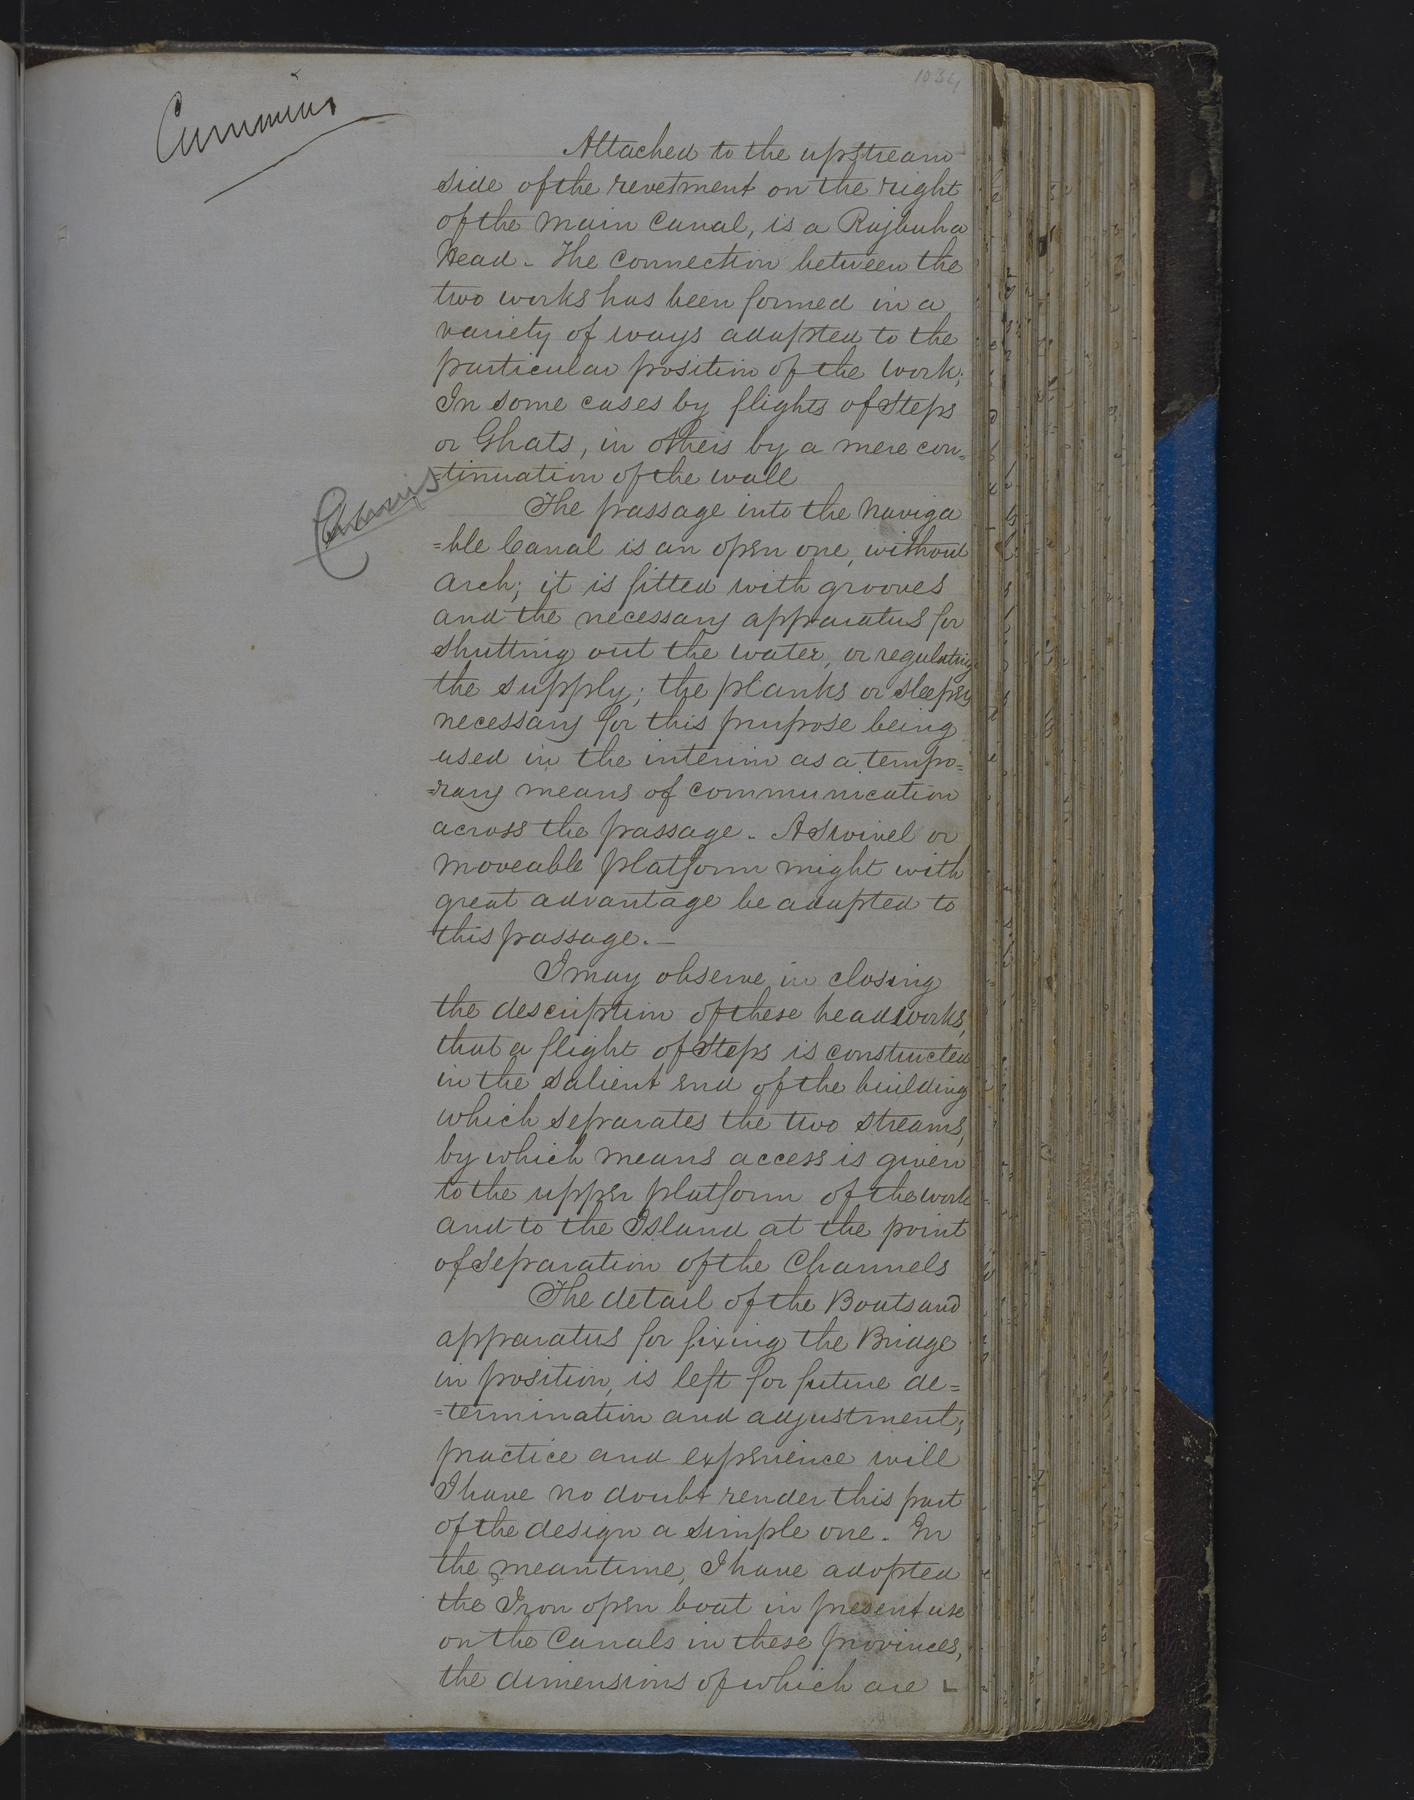 1034
Cummins
Attached to the upstream
side of the revetment on the right
of the main Canal, is a Rajbuha
Head - The connection between the
two works has been formed in a
variety of ways adapted to the
particular position of the work;
In some cases by flights of Steps
or Ghats, in others by a mere con=
=tinuation of the wall
The passage into the Naviga
=ble Canal is an open one, without
Arch; it is fitted with grooves
and the necessary apparatus for
shutting out the water, or regulating
the supply; the planks or sleepers
necessary for this purpose being
used in the interim as a tempo=
=rary means of communication
across the passage - A Swivel or
moveable platform might with
great advantage be adapted to
this passage. -
I may observe in closing
the description of these headworks,
that a flight of Steps is constructed
in the salient end of the building
which separates the two streams,
by which means access is given
to the upper platform of the work
and to the Island at the point
of Separation of the Channels
The detail of the Boats and
apparatus for fixing the Bridge
in position, is left for future de=
=termination and adjustment;
practice and experience will
I have no doubt render this part
of the design a simple one - In
the meantime, I have adopted
the Iron open boat in present use
on the Canals in these provinces,
the dimensions of which are